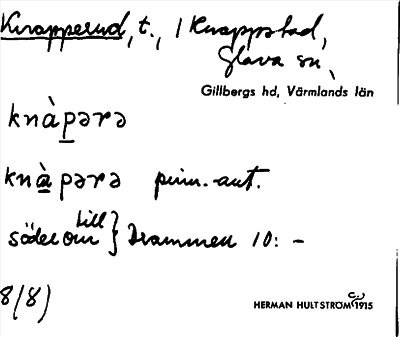 Knapperud, t., / Knappstad,
Glava sn,
Gillbergs hd, Värmlands län
knàpərə
knàpərə prim. aut.
söder om } Drammen 10: -
till
8/8)
HERMAN HULTSTRÖM 1915